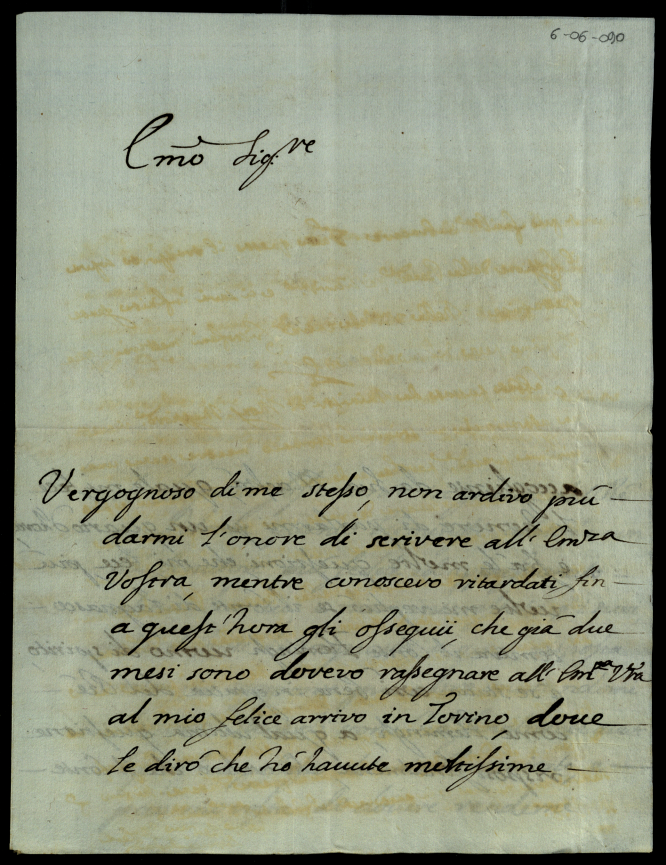 6-06-090
Emo Sig.re
Vergognoso di me stesso, non ardivo più
darmi l'onore di scrivere all' Emza
Vostra, mentre conoscevo ritardati fin
a quest'hora gli ossequii, che già due
mesi sono dovevo rassegnare all' Emza Vra
al mio felice arrivo in Torino, doue
le dirò che hò hauute moltissime